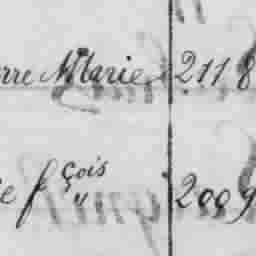 rre Marie 2118
ie fçois 2009